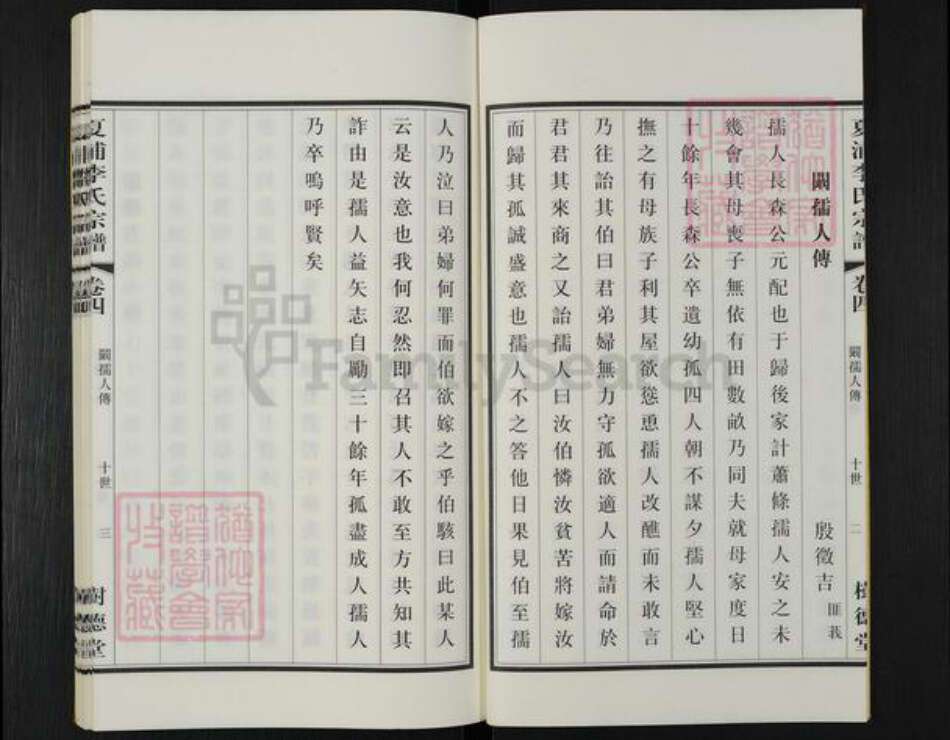 夏浦李氏宗譜 卷四 闞孺人傳 十世 二 樹德堂
闞孺人傳
殷徵吉 匪莪
孺人長森公元配也于歸後家計蕭條孺人安之未
幾會其母喪子無依有田數畝乃同夫就母家度日
十餘年長森公卒遺幼孤四人朝不謀夕孺人堅心
撫之有母族子利其屋欲慫恿孺人改醮而未敢言
乃往詒其伯曰君弟婦無力守孤欲適人而請命於
君君其來商之又詒孺人曰汝伯憐汝貧苦將嫁汝
而歸其孤誠盛意也孺人不之答他日果見伯至孺
人乃泣曰弟婦何罪而伯欲嫁之乎伯駭曰此某人
云是汝意也我何忍然即召其人不敢至方共知其
詐由是孺人益矢志自勵三十餘年孤盡成人孺人
乃卒嗚呼賢矣
夏浦李氏宗譜 卷四 闞孺人傳 十世 三 樹德堂
FamilySearch